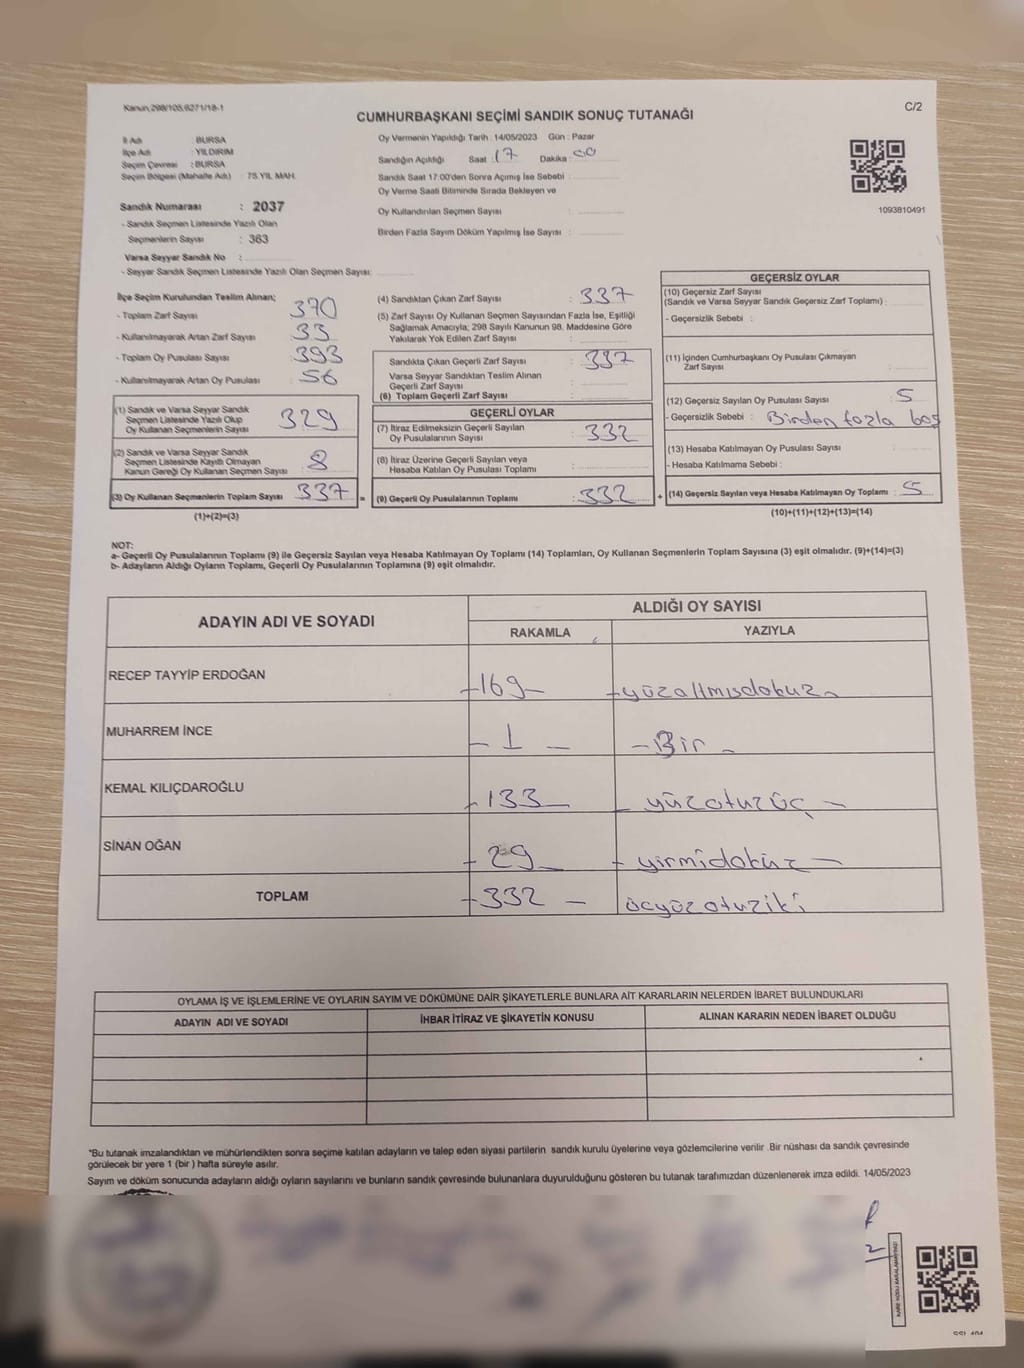 Kanun,298/105,6271/18-1
C/2
CUMHURBAŞKANI SEÇİMİ SANDIK SONUÇ TUTANAĞI
İl Adı : BURSA
İlçe Adı : YILDIRIM
Seçim Çevresi : BURSA
Seçim Bölgesi (Mahalle Adı) : 75.YIL MAH.
Oy Vermenin Yapıldığı Tarih : 14/05/2023 Gün : Pazar
Sandığın Açıldığı Saat : 17 Dakika : 00
Sandık Saat 17:00'den Sonra Açılmış İse Sebebi :
Oy Verme Saati Bitiminde Sırada Bekleyen ve
Oy Kullandırılan Seçmen Sayısı :
Birden Fazla Sayım Döküm Yapılmış İse Sayısı :
1093810491
Sandık Numarası : 2037
- Sandık Seçmen Listesinde Yazılı Olan
Seçmenlerin Sayısı : 363
Varsa Seyyar Sandık No :
- Seyyar Sandık Seçmen Listesinde Yazılı Olan Seçmen Sayısı:
İlçe Seçim Kurulundan Teslim Alınan;
- Toplam Zarf Sayısı : 370
- Kullanılmayarak Artan Zarf Sayısı : 33
- Toplam Oy Pusulası Sayısı : 393
- Kullanılmayarak Artan Oy Pusulası : 56
(1) Sandık ve Varsa Seyyar Sandık
Seçmen Listesinde Yazılı Olup
Oy Kullanan Seçmenlerin Sayısı 329
(2) Sandık ve Varsa Seyyar Sandık
Seçmen Listesinde Kayıtlı Olmayan
Kanun Gereği Oy Kullanan Seçmen Sayısı 8
(3) Oy Kullanan Seçmenlerin Toplam Sayısı 337 =
(1)+(2)=(3)
(4) Sandıktan Çıkan Zarf Sayısı : 337
(5) Zarf Sayısı Oy Kullanan Seçmen Sayısından Fazla İse, Eşitliği
Sağlamak Amacıyla, 298 Sayılı Kanunun 98. Maddesine Göre
Yakılarak Yok Edilen Zarf Sayısı :
Sandıkta Çıkan Geçerli Zarf Sayısı : 337
Varsa Seyyar Sandıktan Teslim Alınan
Geçerli Zarf Sayısı :
(6) Toplam Geçerli Zarf Sayısı :
GEÇERLİ OYLAR
(7) İtiraz Edilmeksizin Geçerli Sayılan
Oy Pusulalarının Sayısı : 332
(8) İtiraz Üzerine Geçerli Sayılan veya
Hesaba Katılan Oy Pusulası Toplamı :
(9) Geçerli Oy Pusulalarının Toplamı : 332 +
GEÇERSİZ OYLAR
(10) Geçersiz Zarf Sayısı
(Sandık ve Varsa Seyyar Sandık Geçersiz Zarf Toplamı) :
- Geçersizlik Sebebi :
(11) İçinden Cumhurbaşkanı Oy Pusulası Çıkmayan
Zarf Sayısı :
(12) Geçersiz Sayılan Oy Pusulası Sayısı : 5
- Geçersizlik Sebebi : Birden fazla boş
(13) Hesaba Katılmayan Oy Pusulası Sayısı :
- Hesaba Katılmama Sebebi :
(14) Geçersiz Sayılan veya Hesaba Katılmayan Oy Toplamı : 5
(10)+(11)+(12)+(13)=(14)
NOT:
a- Geçerli Oy Pusulalarının Toplamı (9) ile Geçersiz Sayılan veya Hesaba Katılmayan Oy Toplamı (14) Toplamları, Oy Kullanan Seçmenlerin Toplam Sayısına (3) eşit olmalıdır. (9)+(14)=(3)
b- Adayların Aldığı Oyların Toplamı, Geçerli Oy Pusulalarının Toplamına (9) eşit olmalıdır.
ADAYIN ADI VE SOYADI
ALDIĞI OY SAYISI
RAKAMLA YAZIYLA
RECEP TAYYİP ERDOĞAN -169- -yüzaltmışdokuz-
MUHARREM İNCE - 1 - -Bir-
KEMAL KILIÇDAROĞLU -133- - yüzotuzüç -
SİNAN OĞAN - 29 - - yirmidokuz -
TOPLAM -332 - üçyüzotuziki
OYLAMA İŞ VE İŞLEMLERİNE VE OYLARIN SAYIM VE DÖKÜMÜNE DAİR ŞİKAYETLERLE BUNLARA AİT KARARLARIN NELERDEN İBARET BULUNDUKLARI
ADAYIN ADI VE SOYADI İHBAR İTİRAZ VE ŞİKAYETİN KONUSU ALINAN KARARIN NEDEN İBARET OLDUĞU
*Bu tutanak imzalandıktan ve mühürlendikten sonra seçime katılan adayların ve talep eden siyasi partilerin sandık kurulu üyelerine veya gözlemcilerine verilir .Bir nüshası da sandık çevresinde
görülecek bir yere 1 (bir ) hafta süreyle asılır.
Sayım ve döküm sonucunda adayların aldığı oyların sayılarını ve bunların sandık çevresinde bulunanlara duyurulduğunu gösteren bu tutanak tarafımızdan düzenlenerek imza edildi. 14/05/2023